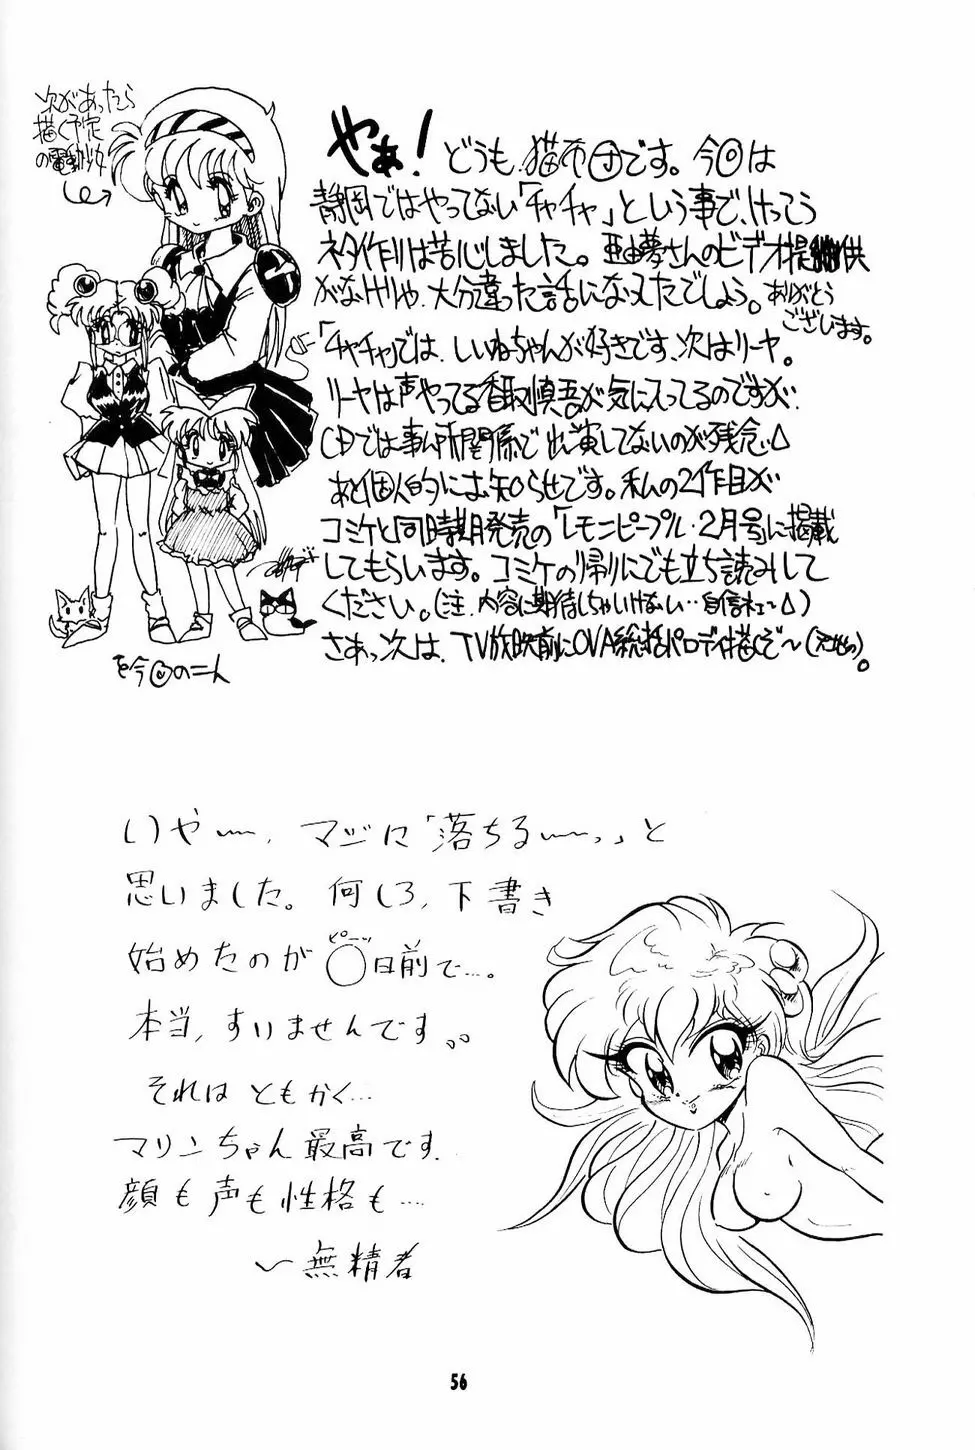 次があったら
描く予定
の電動少女
やぁ!
どうも、猫布団です。今回は
静岡ではやってない「チャチャ」という事で、けっこう
ネタ作りは苦心しました。亜由夢さんのビデオ提供
がなけりゃ、大分違った話になってたでしょう。ありがとう
ございます。
「チャチャ」では、しいねちゃんが好きです、次はリーヤ。
リーヤは声やってる香取慎吾が気に入ってるのですが、
CDでは事ム所関係で出演してないのが残念。
あと個人的にお知らせです。私の2作目が
コミケと同時期発売の「レモンピープル・2月号」に掲載
してもらいます。コミケの帰りにでも立ち読みして
ください。(注、内容に期待しちゃいけない…自信ネェー)
さあっ次は、TV放映前にOVA総括パロディ描くぞ〜
を今回の二人
いやー、マジに「落ちるーっ」と
思いました。何しろ、下書き
始めたのが〇日前で…。
ピーッ
本当、すいませんです。。
それはともかく…
マリンちゃん最高です。
顔も声も性格も…
〜無精者
56